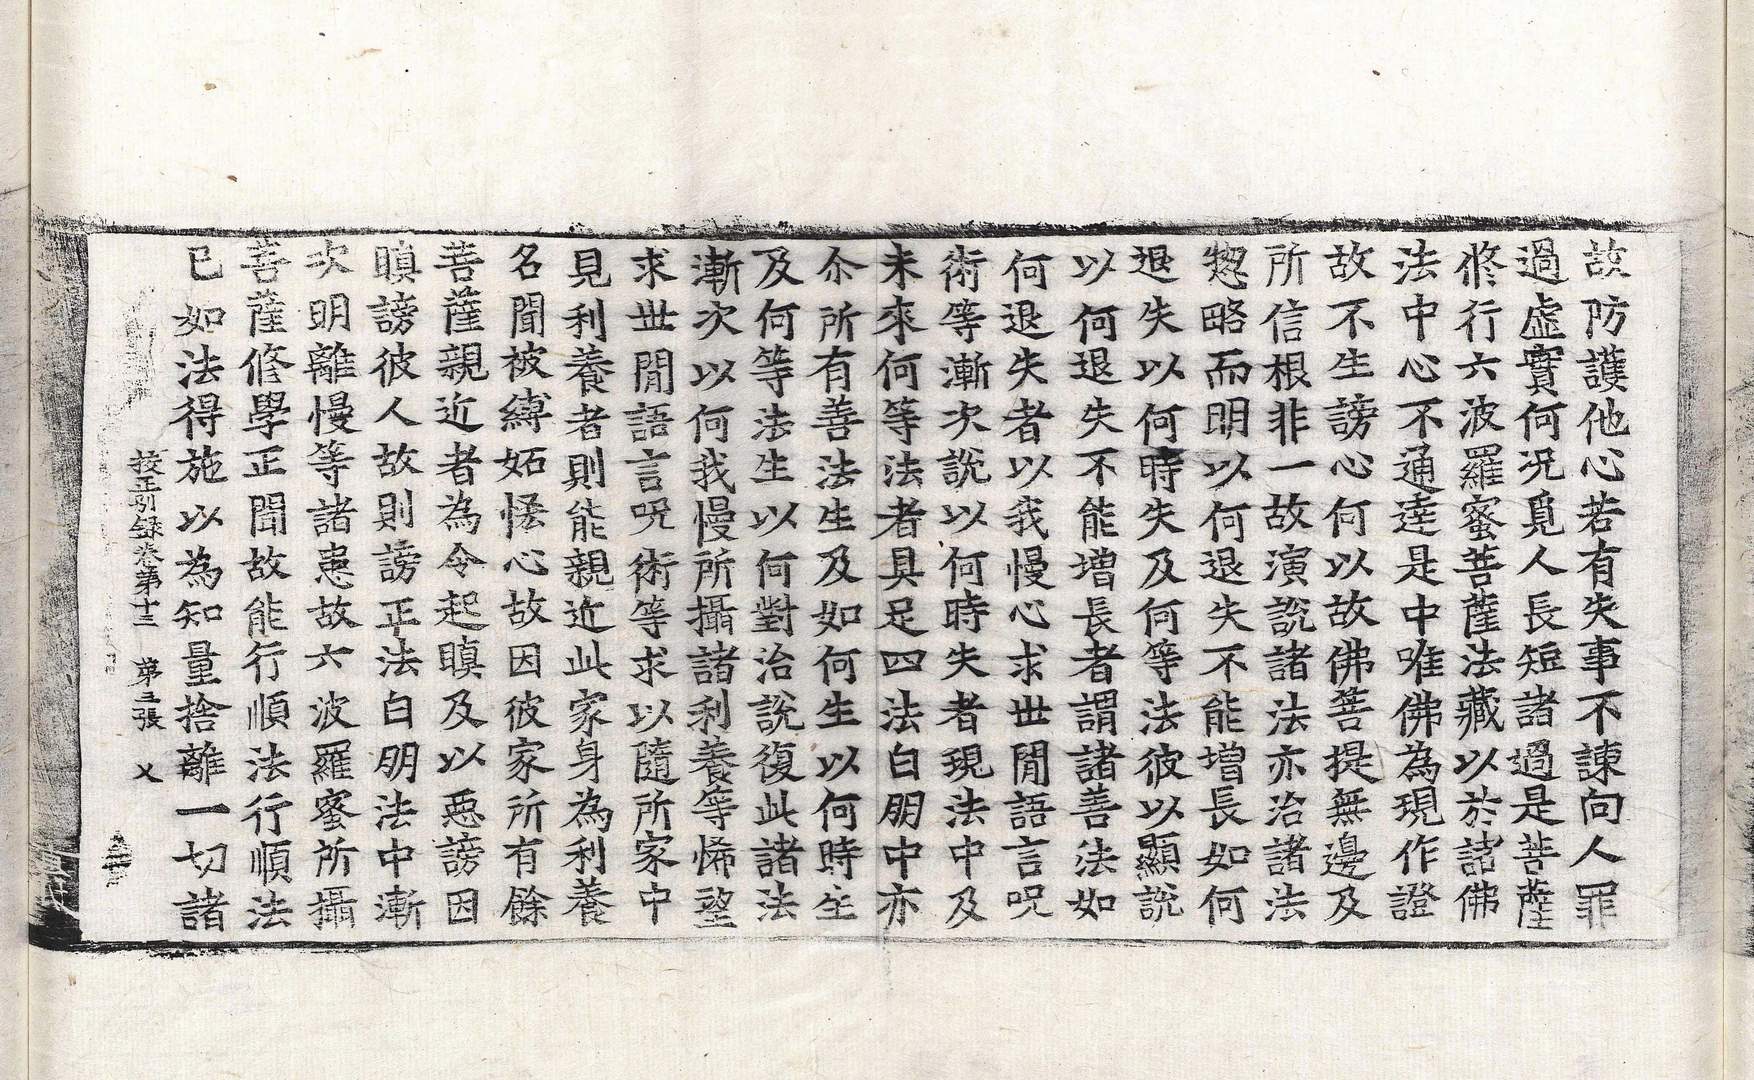 故防護他心若有失事不諫向人罪
過虛實何况覓人長短諸過是菩薩
修行六波羅蜜菩薩法藏以於諸佛
法中心不通達是中唯佛為現作證
故不生謗心何以故佛菩提無邊及
所信根非一故演說諸法亦治諸法
惣略而明以何退失不能增長如何
退失以何時失及何等法彼以顯說
以何退失不能增長者謂諸善法如
何退失者以我慢心求世閒語言呪
術等漸次說以何時失者現法中及
未來何等法者具足四法白朋中亦
尒所有善法生及如何生以何時生
及何等法生以何對治說復此諸法
漸次以何我慢所攝諸利養等悕望
求世閒語言呪術等求以隨所家中
見利養者則能親近此家身為利養
名聞被縛妬恡心故因彼家所有餘
菩薩親近者為令起瞋及以惡謗因
瞋謗彼人故則謗正法白朋法中漸
次明離慢等諸患故六波羅蜜所攝
菩薩修學正聞故能行順法行順法
已如法得施以為知量捨離一切諸
校正別錄卷第十三 第五張 乂